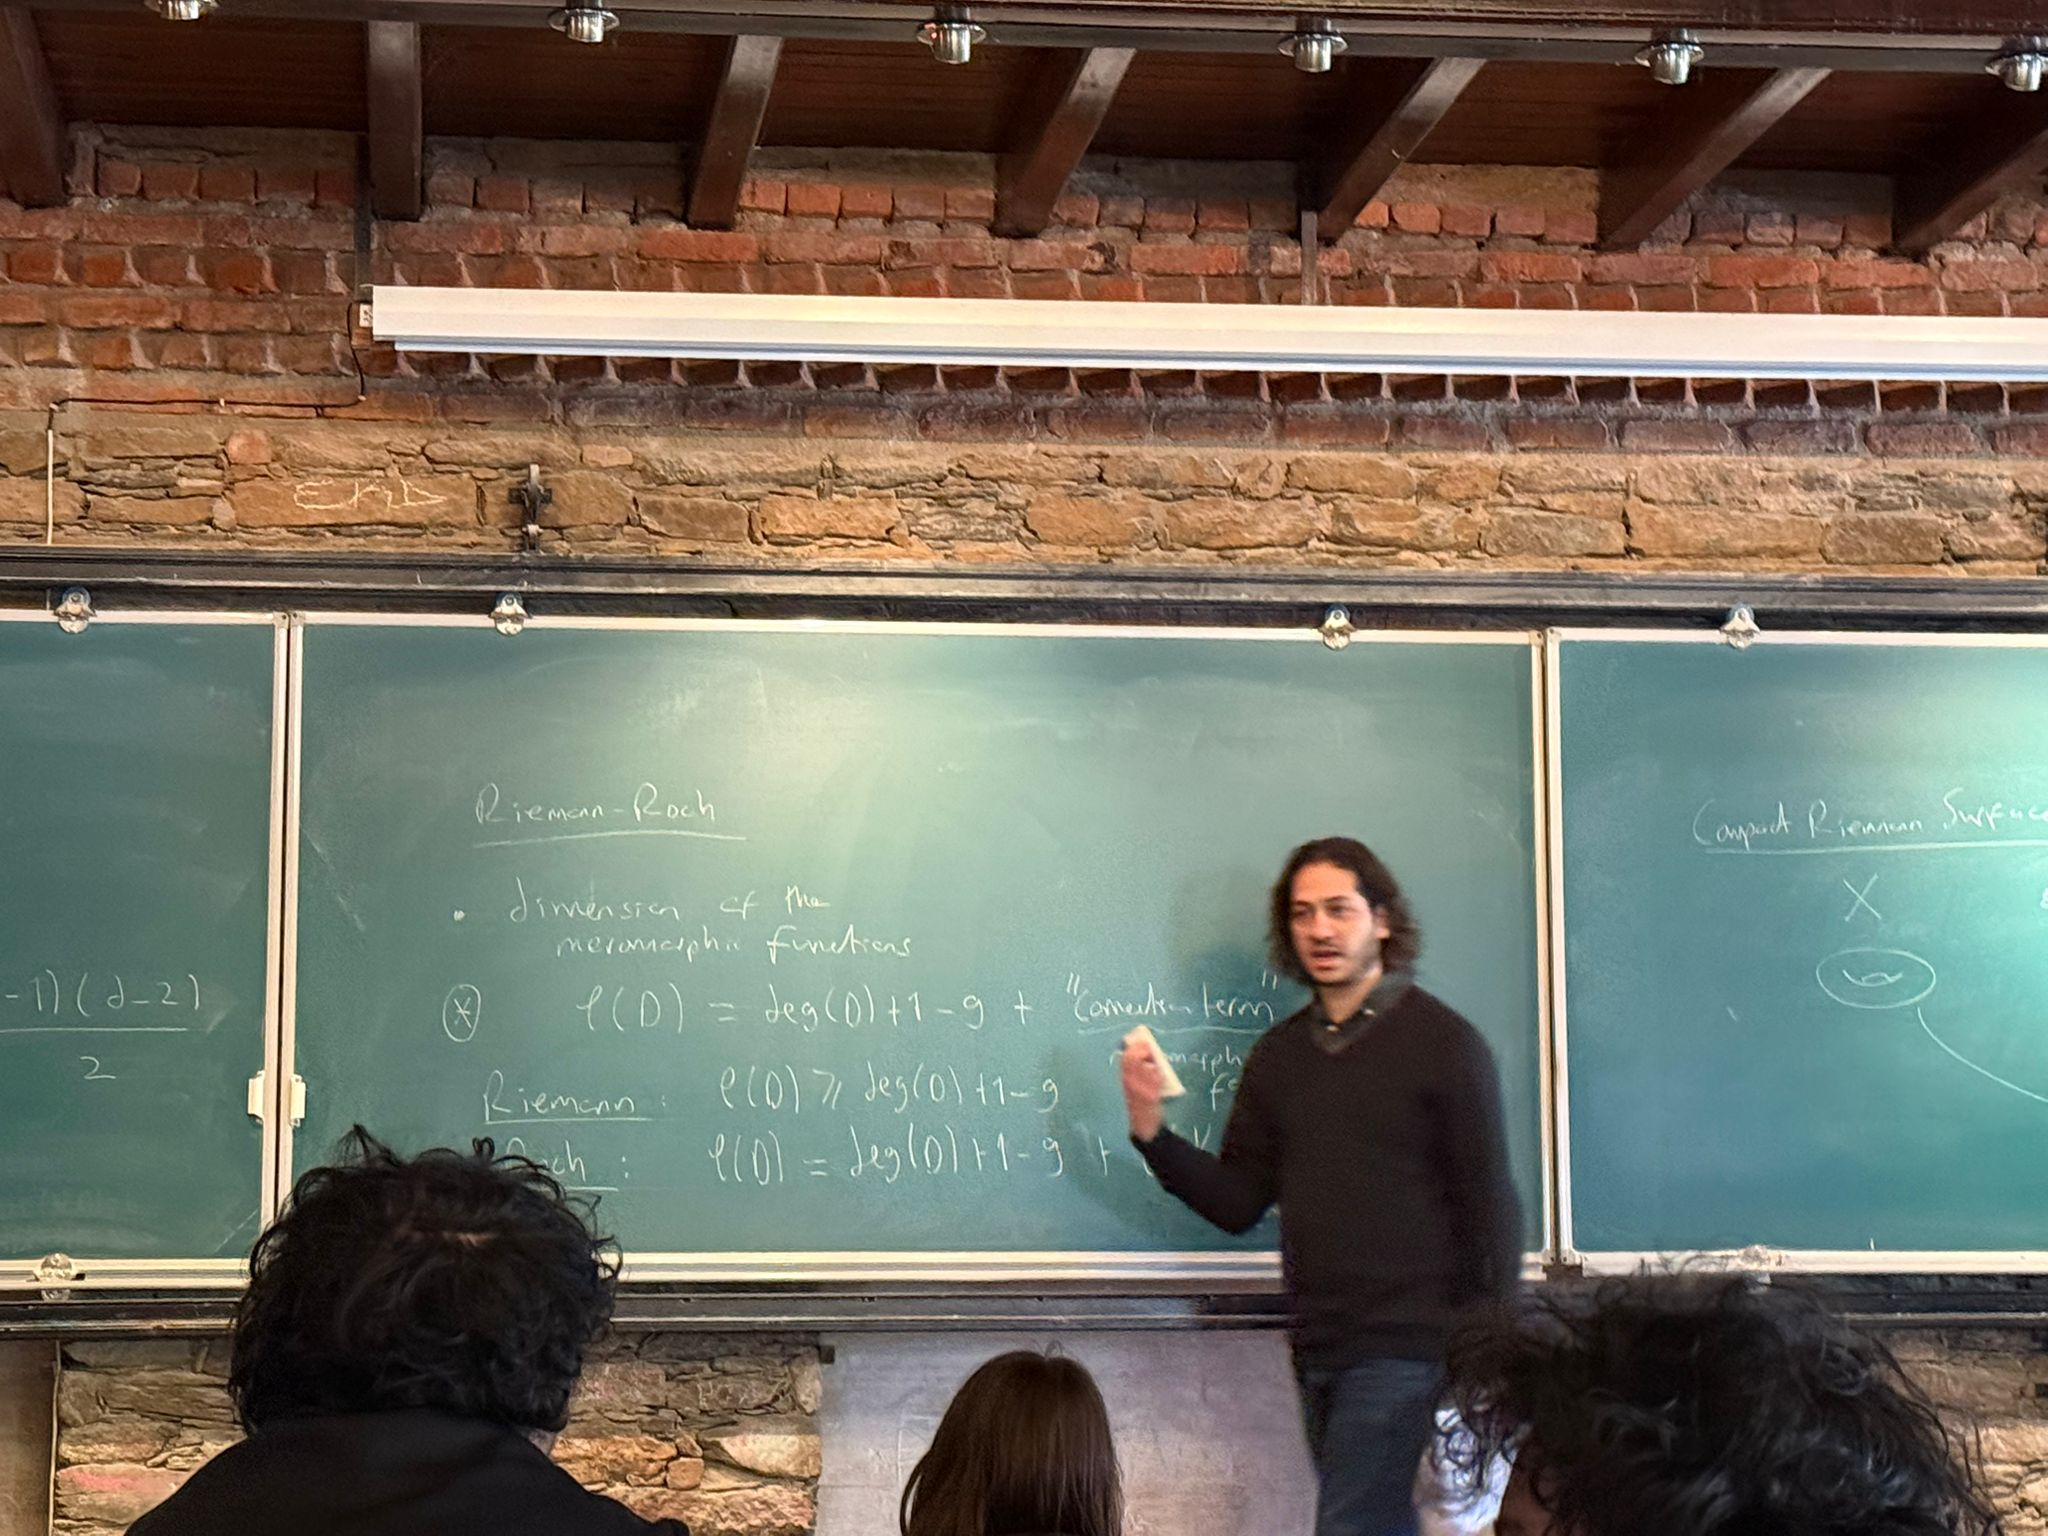 ERID
-1)(d-2)
2
Riemann-Roch
• dimension of the
meromorphic functions
(*) ℓ(D) = deg(D)+1-g + "Correction term"
Riemann: ℓ(D) ≥ deg(D)+1-g
Roch: ℓ(D) = deg(D)+1-g +
Compact Riemann Surface
X